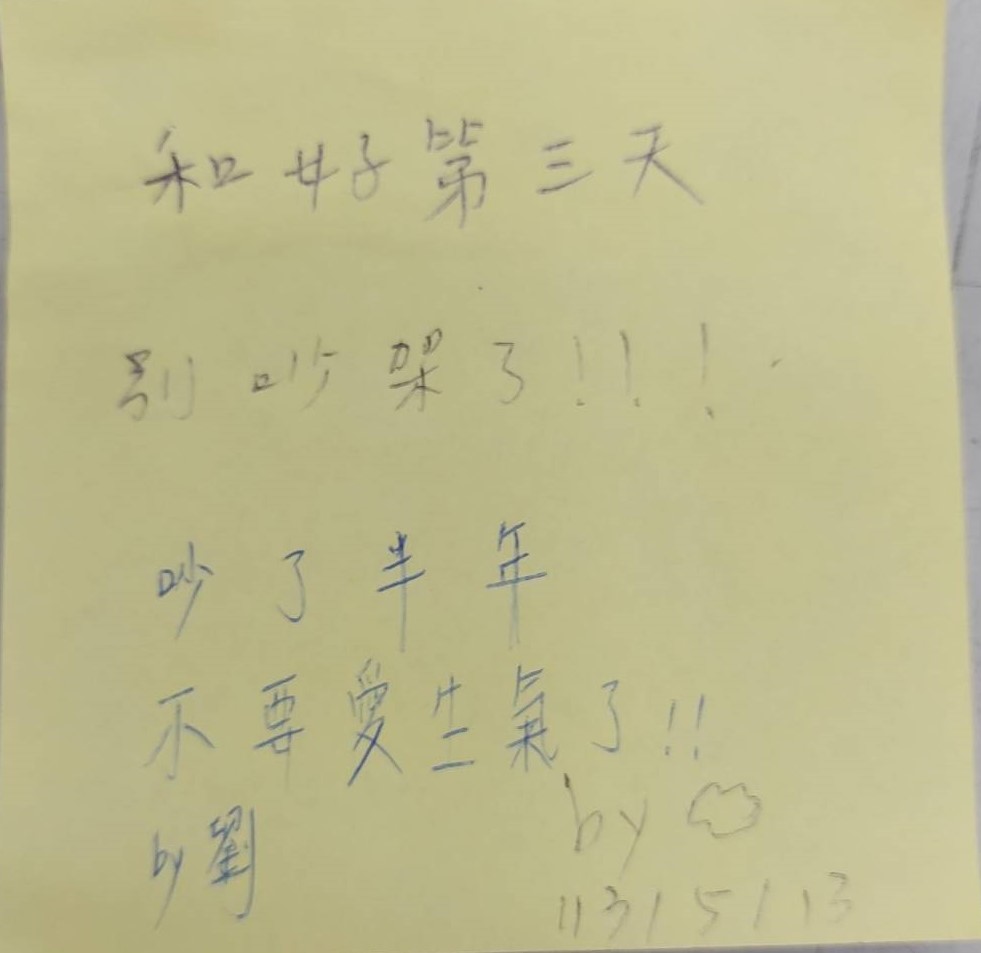 和好第三天
別吵架了!!!
吵了半年
不要愛生氣了!!
by劉
by
113/5/13